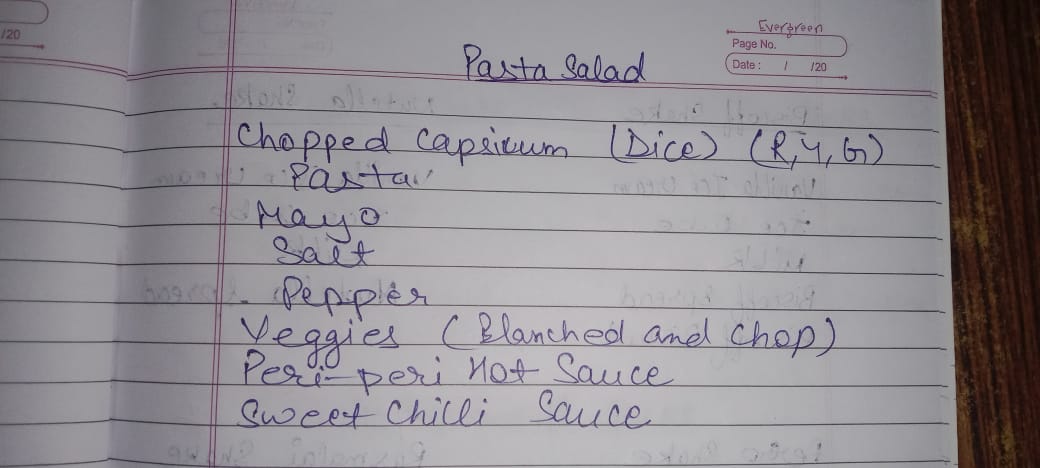 /20
Evergreen
Page No.
Date : / /20
Pasta Salad
Chopped Capsicum (Dice) (R, Y, G)
Pasta
Mayo
Salt
Pepper
Veggies (Blanched and Chop)
Peri-peri Hot Sauce
Sweet Chilli Sauce